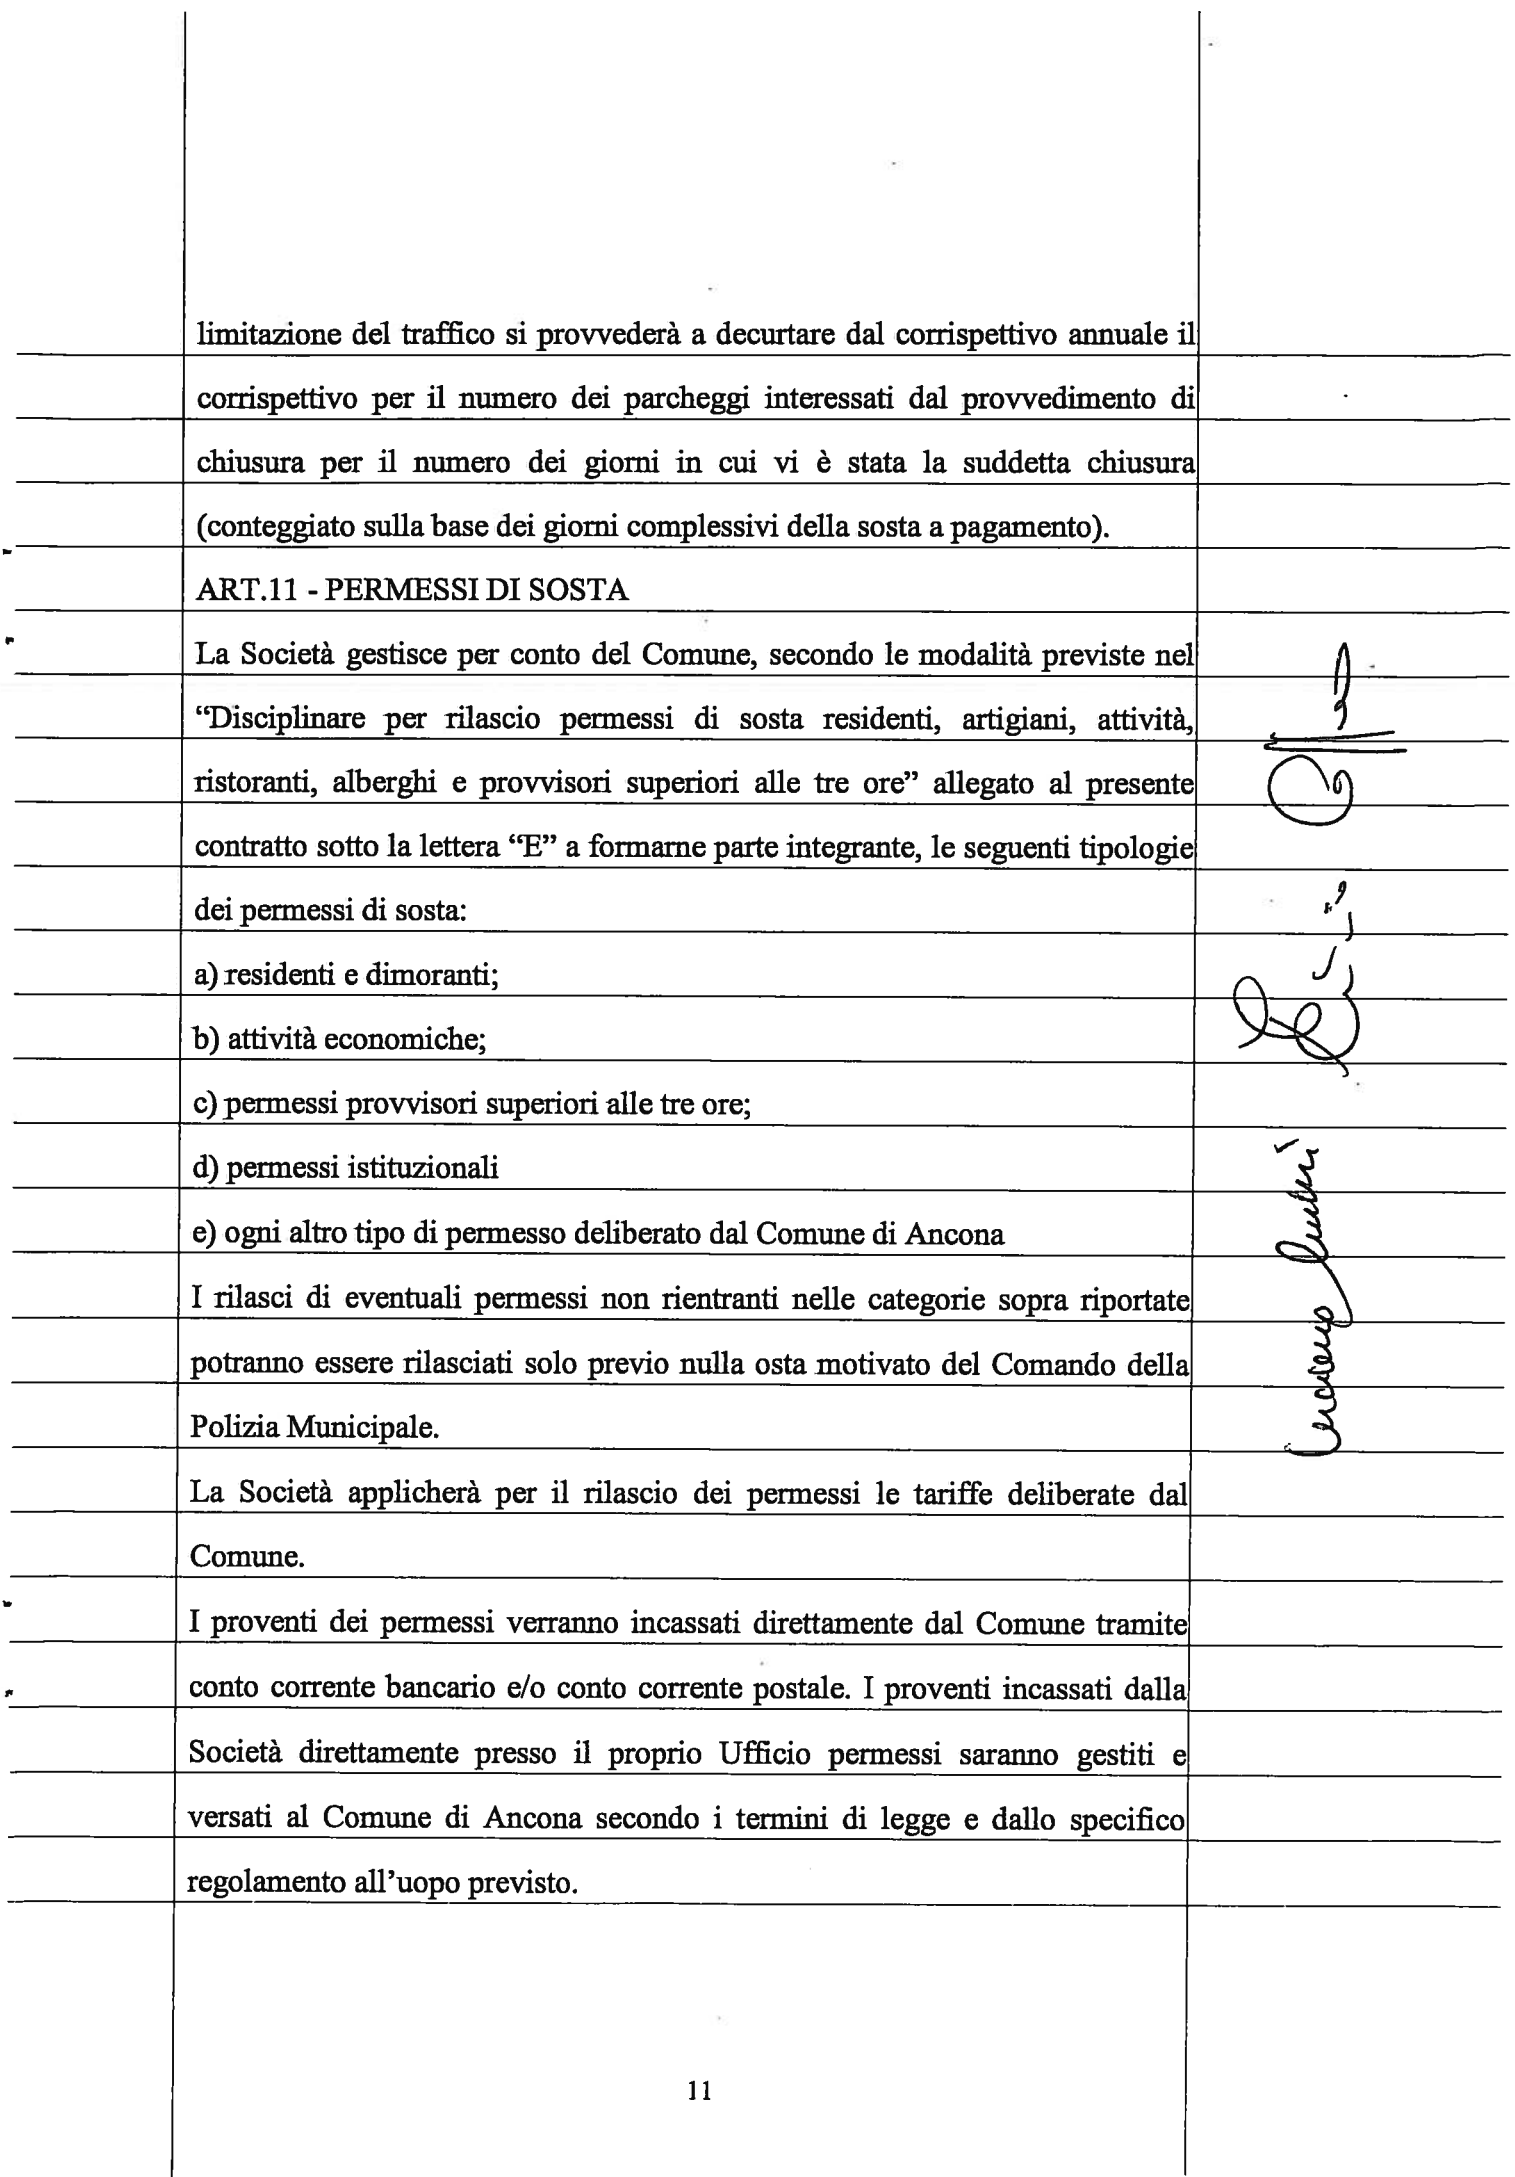 limitazione del traffico si provvederà a decurtare dal corrispettivo annuale il
corrispettivo per il numero dei parcheggi interessati dal provvedimento di
chiusura per il numero dei giorni in cui vi è stata la suddetta chiusura
(conteggiato sulla base dei giorni complessivi della sosta a pagamento).
ART.11 - PERMESSI DI SOSTA
La Società gestisce per conto del Comune, secondo le modalità previste nel
“Disciplinare per rilascio permessi di sosta residenti, artigiani, attività,
ristoranti, alberghi e provvisori superiori alle tre ore” allegato al presente
contratto sotto la lettera “E” a formarne parte integrante, le seguenti tipologie
dei permessi di sosta:
a) residenti e dimoranti;
b) attività economiche;
c) permessi provvisori superiori alle tre ore;
d) permessi istituzionali
e) ogni altro tipo di permesso deliberato dal Comune di Ancona
I rilasci di eventuali permessi non rientranti nelle categorie sopra riportate
potranno essere rilasciati solo previo nulla osta motivato del Comando della
Polizia Municipale.
La Società applicherà per il rilascio dei permessi le tariffe deliberate dal
Comune.
I proventi dei permessi verranno incassati direttamente dal Comune tramite
conto corrente bancario e/o conto corrente postale. I proventi incassati dalla
Società direttamente presso il proprio Ufficio permessi saranno gestiti e
versati al Comune di Ancona secondo i termini di legge e dallo specifico
regolamento all’uopo previsto.
11